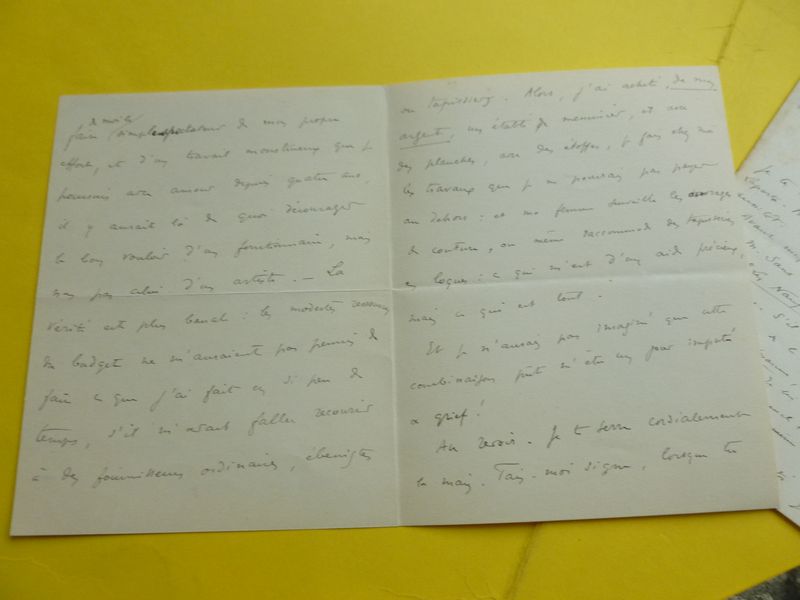 de moi le
faire simple spectateur de mon propre
effort, et d'un travail monstrueux que je
poursuis avec amour depuis quatre ans,
il y aurait là de quoi décourager
le bon vouloir d'un fonctionnaire, mais
non pas celui d'un artiste. — La
vérité est plus banale : les modestes ressources
du budget ne m'auraient pas permis de
faire ce que j'ai fait en si peu de
temps, s'il m'avait fallu recourir
à des fournisseurs ordinaires, ébénistes
ou tapissiers. Alors, j'ai acheté, de mon
argent, un établi de menuisier, et avec
des planches, avec des étoffes, je fais chez moi
les travaux que je ne pourrais pas payer
au dehors : et ma femme surveille les ouvrages
de couture, ou même raccommode des tapisseries
en loques : ce qui m'est d'une aide précieuse,
mais ce qui est tout.
Et je n'aurais pas imaginé que cette
combinaison pût m'être un jour imputée
à grief !
Au revoir. Je te serre cordialement
la main. Fais-moi signe, lorsque tu
Je te